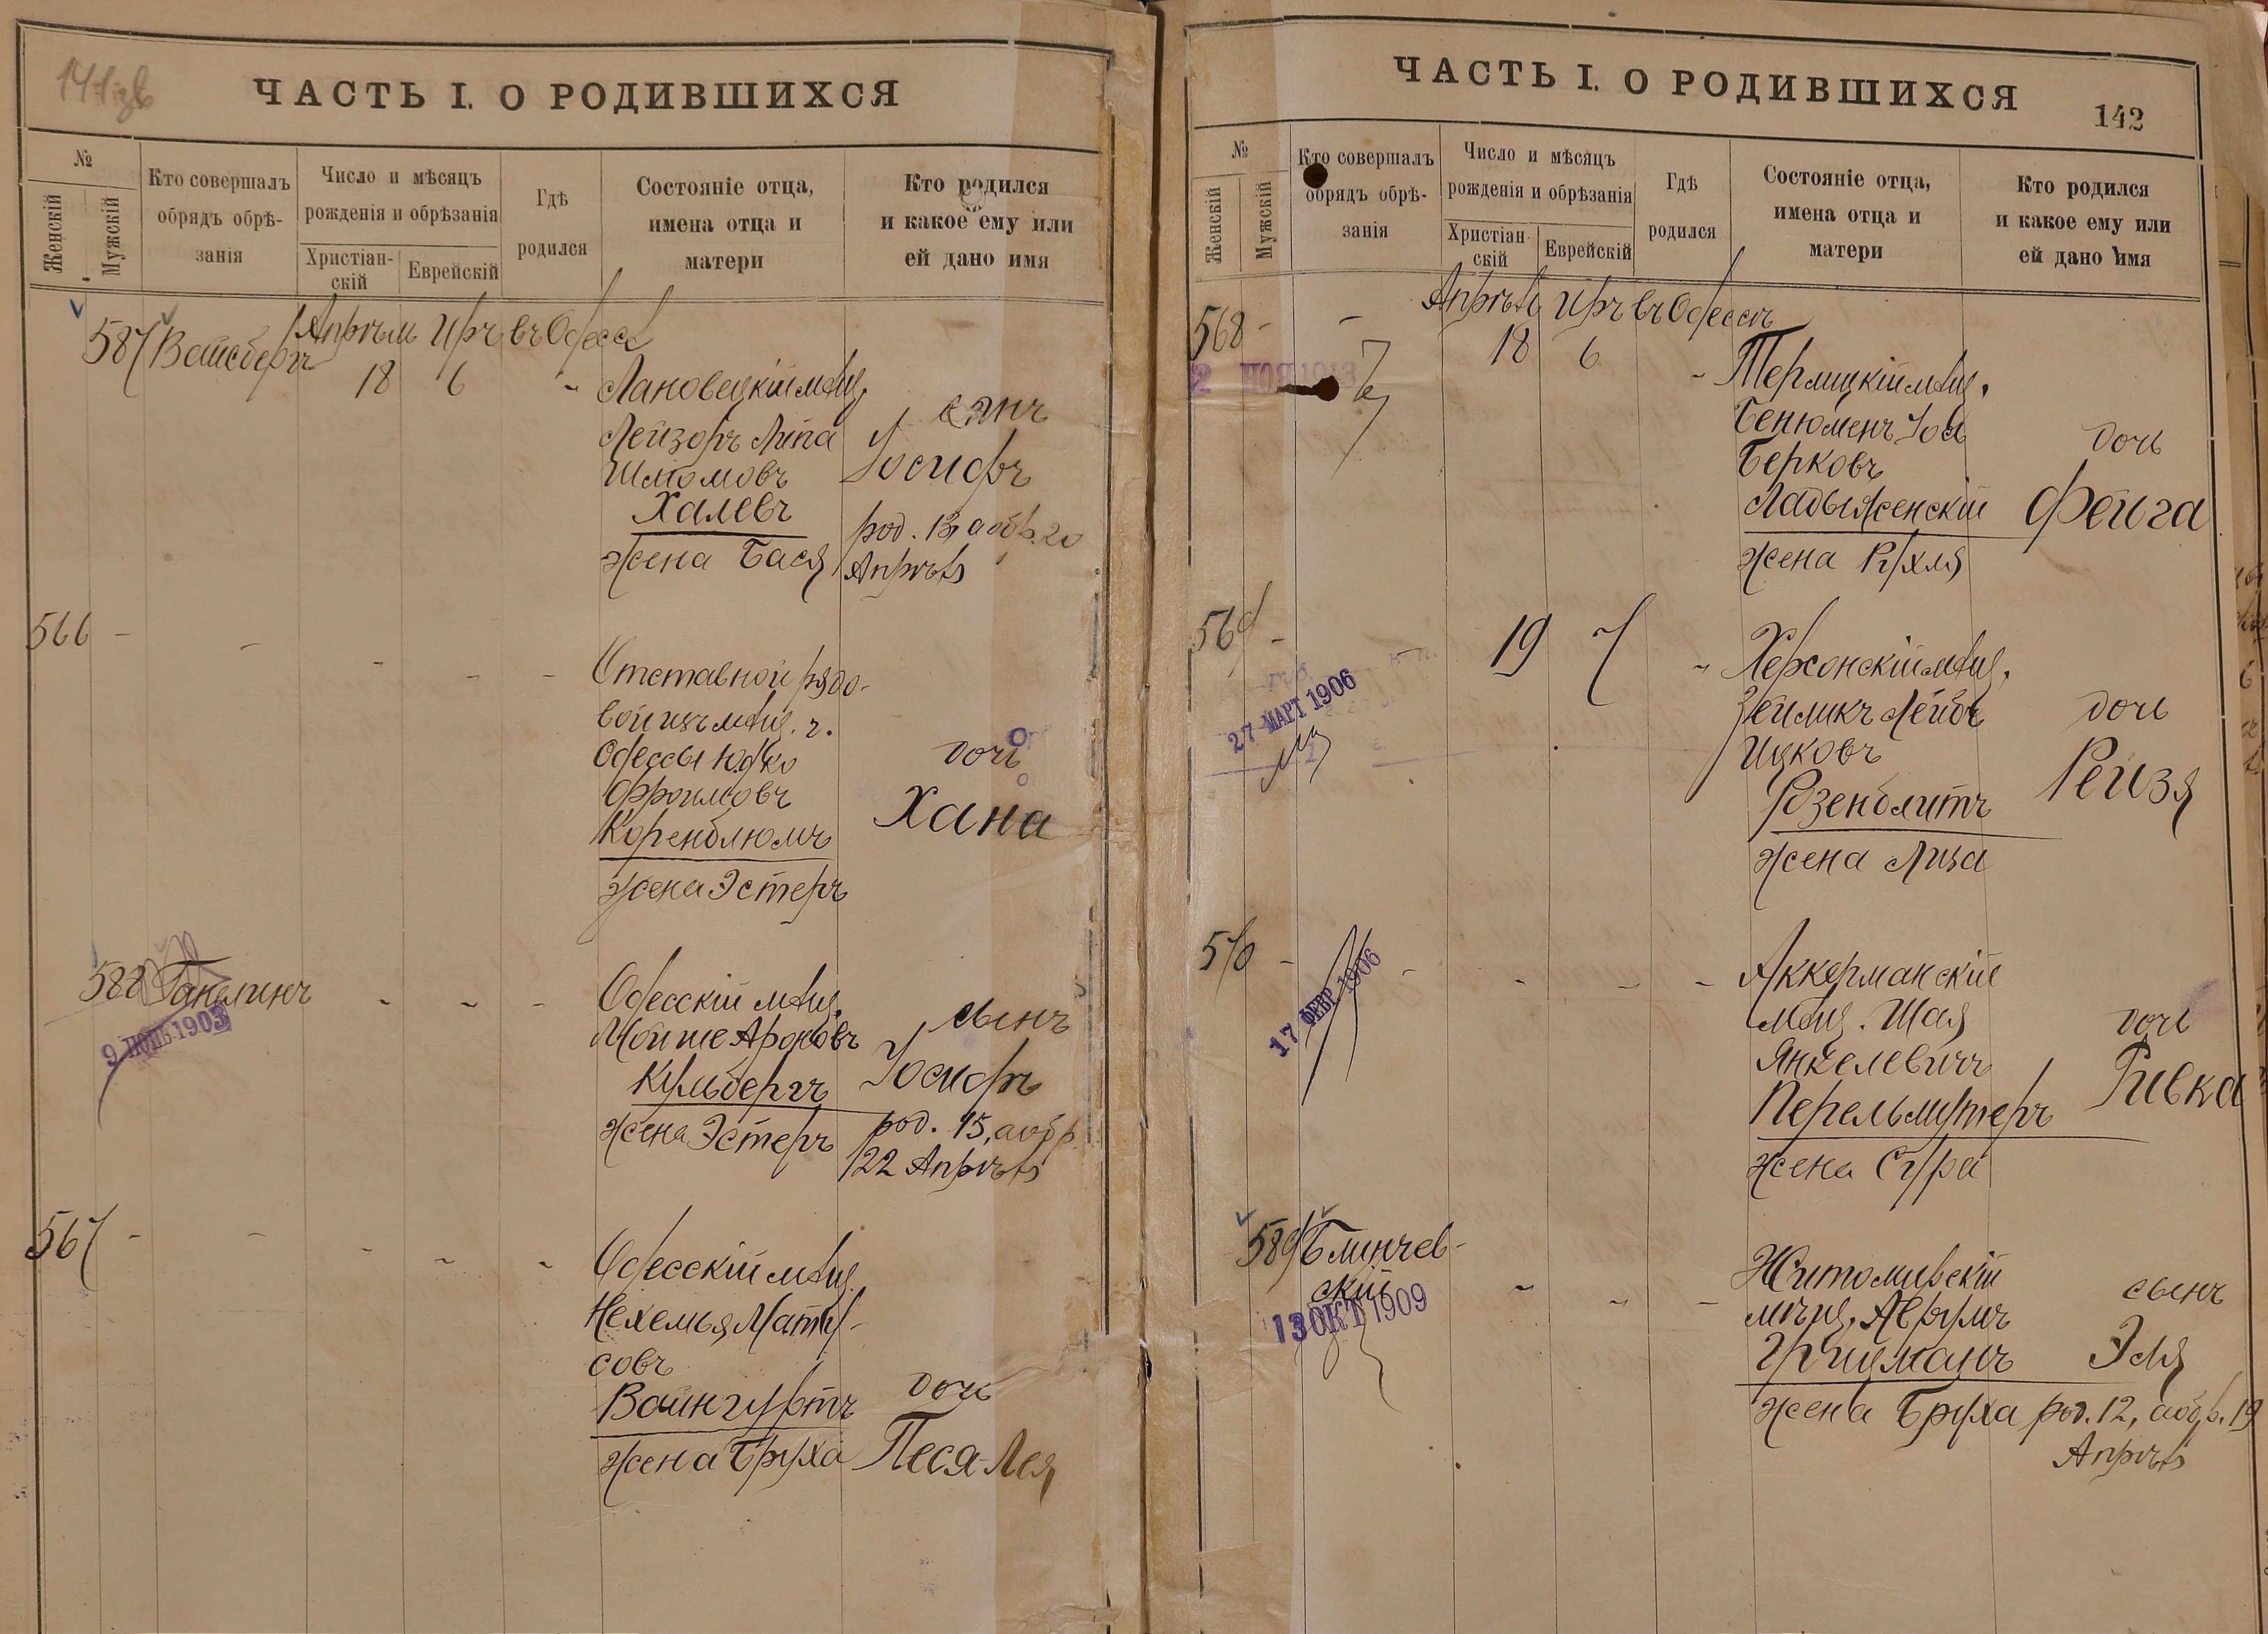 ЧАСТЬ I. О РОДИВШИХСЯ
№
Женскій
Мужскій
Кто совершалъ
обрядъ обрѣ-
занія
Число и мѣсяцъ
рожденія и обрѣзанія
Христіан-
скій
Еврейскій
Гдѣ
родился
Состояніе отца,
имена отца и
матери
Кто родился
и какое ему или
ей дано имя
587 Вайсбергъ
Апрѣль Иръ въ Одессѣ
18 6 -
Лановецкій мѣщ.
Лейзоръ Липа
Шлiомовъ
Халевъ
жена Бася
сынъ
Іосифъ
род. 13, а обр. 20
Апрѣля
566 - - - - -
Отставной рядо-
вой изъ мѣщ. г.
Одессы Юдко
Фроимовъ
Коренблюмъ
жена Эстеръ
дочь
Хана
588 - - -
9 1903
Одесскій мѣщ.
Мойше Ароновъ
Кульбергъ
жена Эстеръ
сынъ
Іосифъ
род. 15, а обр.
22 Апрѣля
567 - - - - -
Одесскій мѣщ.
Нехемья Мату-
совъ
Вайнгуртъ
жена Бруха
дочь
Песя-Лея
ЧАСТЬ I. О РОДИВШИХСЯ
142
№
Женскій
Мужскій
Кто совершалъ
обрядъ обрѣ-
занія
Число и мѣсяцъ
рожденія и обрѣзанія
Христіан-
скій
Еврейскій
Гдѣ
родился
Состояніе отца,
имена отца и
матери
Кто родился
и какое ему или
ей дано имя
568 - -
Апрѣль Иръ въ Одессѣ
18 6 -
2 НОЯ 1913
Терлицкій мѣщ.
Бенюменъ Іось
Берковъ
Ладыженскій
жена Рухля
дочь
Фейга
569 -
19 7 -
27 МАРТ 1906
Херсонскій мѣщ.
Зейликъ Лейбъ
Ицковъ
Розенблитъ
жена Лиза
дочь
Рейзя
570 - - - - -
17 ФЕВР 1906
Аккерманскій
мѣщ. Шая
Янкелевичъ
Перельмутеръ
жена Сура
дочь
Ривка
589 Блинчев-
скій
13 ОКТ 1909
- - -
Житомирскій
мѣщ. Аврумъ
жена Бруха
сынъ
Эля
род. 12, а обр. 19
Апрѣля